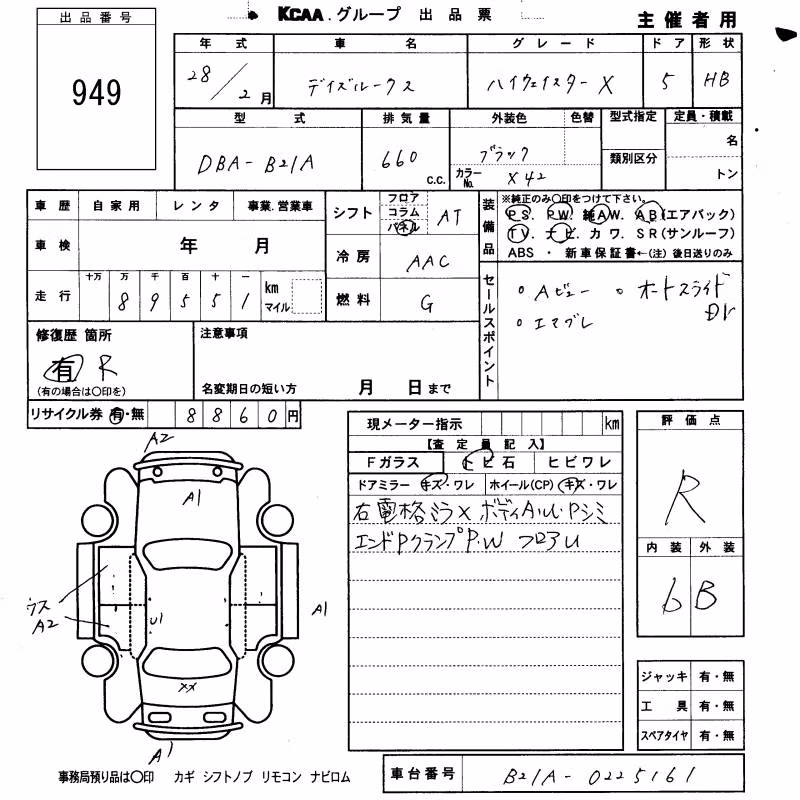 出品番号
949
KCAA.グループ 出品票
主催者用
年式 車名 グレード ドア 形状
28/2月 デイズルークス ハイウェイスターX 5 HB
型式 排気量 外装色 色替 型式指定 定員・積載
DBA-B21A 660 c.c. ブラック 名
カラーNo. X42 類別区分 トン
車歴 自家用 レンタ 事業.営業車
車検 年 月
走行 十万 万 千 百 十 一
8 9 5 5 1 km マイル
シフト フロア コラム パネル AT
冷房 AAC
燃料 G
装備品 ※純正のみ○印をつけて下さい。
PS. PW. 純AW. AB(エアバック)
TV. ナビ. カワ. SR(サンルーフ)
ABS ・ 新車保証書←(注) 後日送りのみ
セールスポイント
○ Aビュー ○ オートスライドDr
○ エマブレ
修復歴 箇所
有 R
(有の場合は○印を)
注意事項
名変期日の短い方 月 日まで
リサイクル券 有・無 8860円
現メーター指示 km
【査定員記入】
Fガラス トビ石 ヒビワレ
ドアミラー キズ・ワレ ホイール(CP) キズ・ワレ
右電格ミラ× ボディAU.Pシミ
エンドPクランプP.W フロアU
評価点
R
内装 外装
6 B
ジャッキ 有・無
工具 有・無
スペアタイヤ 有・無
A2
A1
ウス
A2
U1
A1
XX
A1
事務局預り品は○印 カギ シフトノブ リモコン ナビロム
車台番号 B21A-0225161